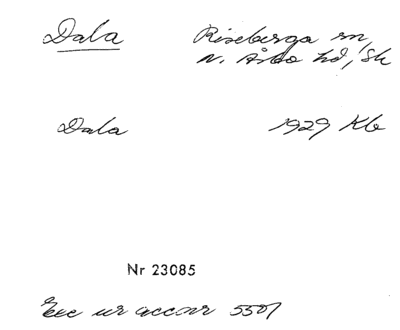 Dala Riseberga sn,
N. Åsbo hd, Sk
Dala 1929 Kb
Nr 23085
Exc ur acc nr 5507